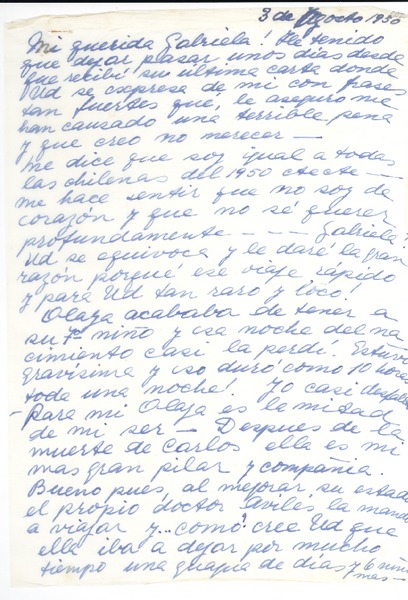 3 de Agosto 1950
Mi querida Gabriela! He tenido
que dejar pasar unos días desde
que recibí su última carta donde
Ud se expresa de mi con frases
tan fuertes que, le aseguro me
han causado una terrible pena
y que creo no merecer —
Me dice que soy igual a todas
las chilenas del 1950 etecte —
me hace sentir que no soy de
corazón y que no sé querer
profundamente — — — Gabriela!
Ud se equivoca y le daré la gran
razón porqué ese viaje rápido
y para Ud tan raro y loco!
Olaya acababa de tener a
su 7º niño y esa noche del na
cimiento casi la perdí. Estuvo
gravísima y eso duró como 10 horas
toda una noche! Yo casi
- Para mi Olaya es la mitad
de mi ser — Despues de la
muerte de Carlos ella es mi
mas gran pilar y compañia.
Bueno pues, al mejorar su estado
el propio doctor Aviles, la mandó
a viajar y... como? cree Ud que
ella iba a dejar por mucho
tiempo una guagua de días y 6 niños
mas —